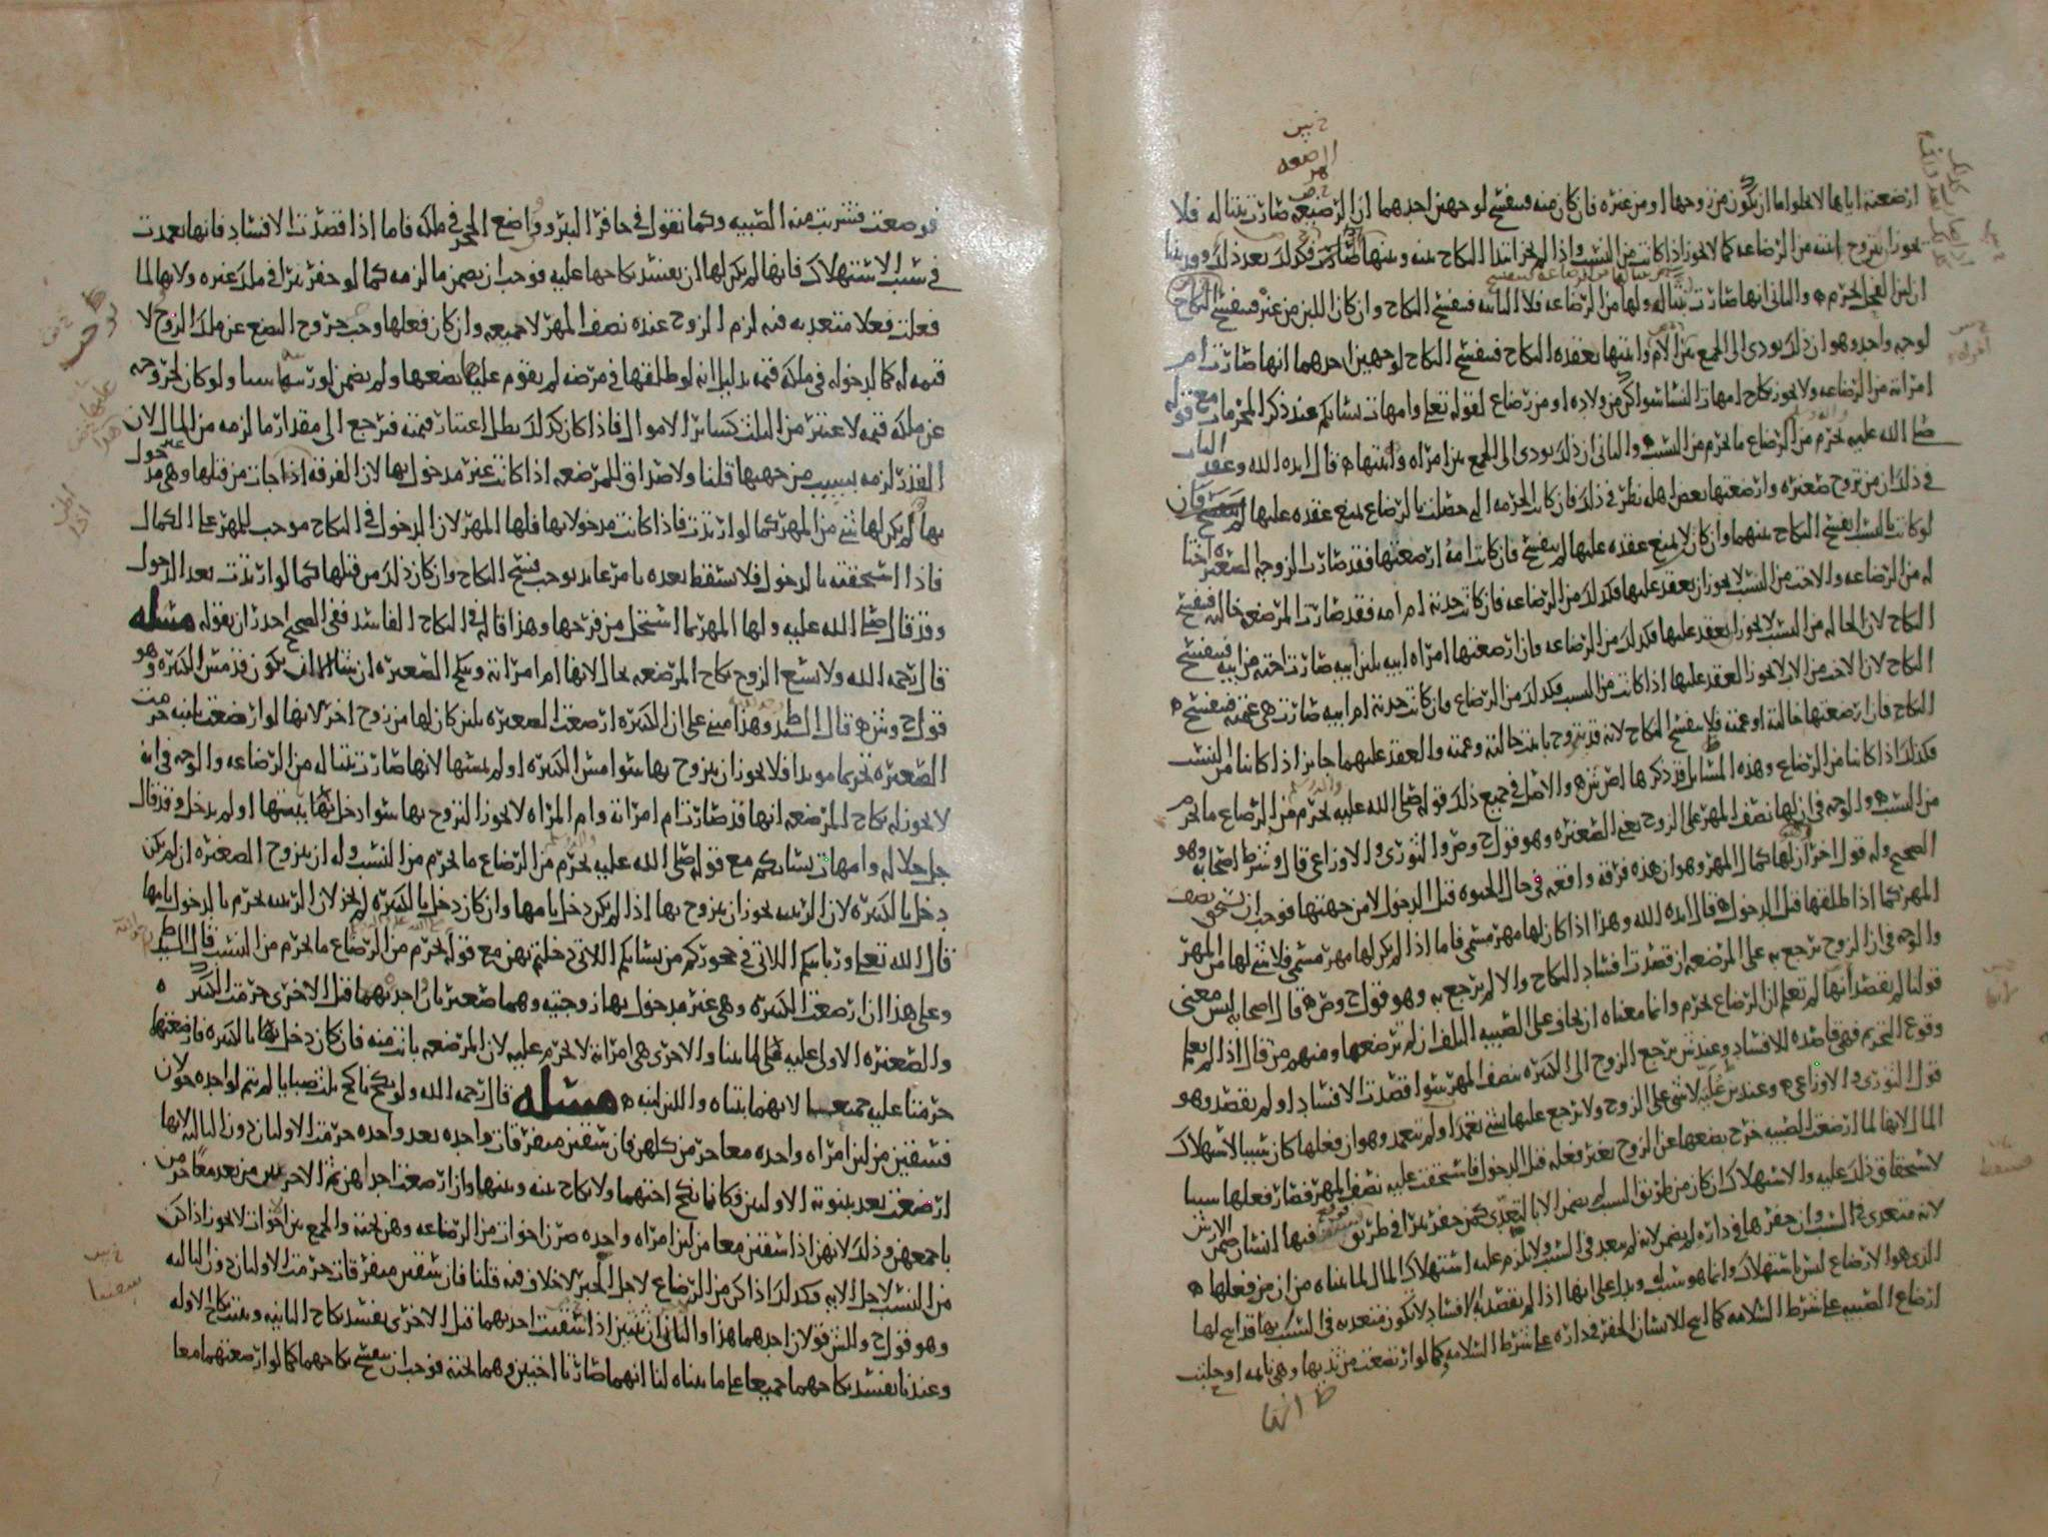 ارضعته اياها لا يخلوا اما ان يكون من زوجها او من غيره فان كان منه فينفسخ لوجهين احدهما ان الرضيعه صارت بنتا له فلا
يجوز ان يتزوج ابنته من الرضاعه كما لا يجوز اذا كانت من النسب واذا لم يجز ابتدا النكاح بينه وبينها فكذلك بعد ذلك
ان لبن الفحل يحرم والثاني انها صارت بنتا له ولها من الرضاعه فينفسخ النكاح وان كان اللبن من غيره فينفسخ النكاح
لوجه واحد وهو ان ذلك يودي الى الجمع بين الام وابنتها بعقده النكاح فينفسخ النكاح لوجهين احدهما انها صارت ام
امراته من الرضاعه ولا يجوز نكاح امهات النسا سوا كن من ولاده او من رضاع لقوله تعلى وامهات نسائكم عند ذكر المحرمات مع قوله
صلى الله عليه يحرم من الرضاع ما يحرم من النسب والثاني ان ذلك يودي الى الجمع بين امراه وابنتها قال ايده الله وعقد الباب
في ذلك ان من تزوج صغيره وارضعتها بعض اهله نظر في ذلك فان كانت الحرمه التي حصلت بالرضاع يمنع عقده عليها
لو كانت بالنسب انفسخ النكاح بينهما وان كان لا يمنع عقده عليها لم ينفسخ فان كانت امه ارضعتها فقد صارت الزوجه الصغيره اختا
له من الرضاعه والاخت من النسب لا يجوز ان يعقد عليها فكذلك من الرضاعه فان كانت جدته ام امه فقد صارت المرضعه خالته فينفسخ
النكاح لان الخاله من النسب لا يجوز ان يعقد عليها فكذلك من الرضاعه فان ارضعتها امراه ابيه بلبن ابيه صارت اخته من ابيه فينفسخ
النكاح لان الاخت من الاب لا يجوز العقد عليها اذا كانت من النسب فكذلك من الرضاع فان كانت جدته ام ابيه صارت هي عمته فينفسخ
النكاح فان ارضعتها خالته او عمته فلا ينفسخ النكاح لانه قد يتزوج بابنت خالته وعمته والعقد عليهما جايز اذا كانتا من النسب
فكذلك اذا كانتا من الرضاع وهذه المسايل قد ذكرها اصش والاصل في جميع ذلك قوله صلى الله عليه يحرم من الرضاع ما يحرم
من النسب والوجه في ان لها نصف المهر على الزوج يعني الصغيره وهو قول ح وص والثوري والاوزاعي قال وشرط اصحابه وهو
الصحيح وله قول اخر ان لها كمال المهر وهو ان هذه فرقه واقعه في حال الحيوه قبل الدخول لا من جهتها فوجب ان تستحق نصف
المهر كما اذا طلقها قبل الدخول قال ايده الله وهذا اذا كان لها مهر مسمى فاما اذا لم يكن لها مهر مسمى فلا شي لها من المهر
والوجه في ان الزوج يرجع به على المرضعه ان قصدت افساد النكاح والا لم يرجع به وهو قول ح وص قال اصحابه ليس معنى
قولنا لم تقصد انها لم تعلم ان الرضاع يحرم وانما معناه ان يخاف على الصبيه التلف ان لم ترضعها ومنهم من قال اذا لم تعلم
وقوع التحريم فهي قاصده للافساد وعند ش يرجع الزوج الى الكبيره بنصف المهر سوا قصدت الافساد او لم تقصد وهو
قول الثوري والاوزاعي وعند لا شي على الزوج ولا يرجع عليها بشي تعمدت او لم تتعمد وهو ان فعلها كان سببا لاستهلاك
المال لانها لما ارضعت الصبيه خرج بضعها عن الزوج بغير فعله قبل الدخول فاستحقت عليه نصف المهر فصار فعلها سببا
لاستحقاق ذلك عليه والاستهلاك ان كان من طريق السبب لم يضمن الا بالتعدي كمن حفر بيرا في طريق فوقع فيها انسان ضمن الارش
لانه متعدي في السبب وان حفرها في داره لم يضمن لانه لم يتعد في السبب ولا يلزم عليه استهلاك المال لما بيناه من ان من فعلها
الذي هو الارضاع ليس باستهلاك وانما هو سبب ويدل على انها اذا لم تقصد به الافساد لا تكون متعديه في السبب بها قد ابيح لها
ارضاع الصبيه على شرط السلامه كما ابيح للانسان الحفر في داره على شرط السلامه كما لو ارتضعت من ثديها وهي نايمه او حلبت
فوضعت فشربت منه الصبيه وكما نقول في حافر البير وواضع الحجر في ملكه فاما اذا قصدت الافساد فانها تعمدت
في سبب الاستهلاك فانها لم يكن لها ان يفسد نكاحها عليه فوجب ان يضمن ما لزمه كما لو حفر بيرا في ملك غيره ولانها لما
فعلت فعلا متعديه فيه لزم الزوج عنده نصف المهر لا جميعه وان كان فعلها وجب خروج البضع عن ملك الزوج لا
قيمه له كما لدخوله في ملكه قيمه بدليل انه لو طلقها في مرضه لم يقوم عليها بضعها ولم يضمن لورثتها شيا ولو كان لخروجه
عن ملكه قيمه لاعتبر من الثلث كساير الاموال فاذا كان كذلك بطل اعتبار قيمته فيرجع الى مقدار ما لزمه من المال لان
القدر لزمه بسبب من جهتها قلنا ولا صداق للمرضعه اذا كانت غير مدخول بها لان الفرقه اذا جات من قبلها وهي غير مدخول
بها لم يكن لها شي من المهر كما لو ارتدت فاذا كانت مدخولا بها فلها المهر لان الدخول في النكاح موجب للمهر على الكمال
فاذا استحقته بالدخول فلا يسقط بعده بامر عايد يوجب فسخ النكاح وان كان ذلك من قبلها كما لو ارتدت بعد الدخول
وقد قال صلى الله عليه ولها المهر بما استحل من فرجها وهذا قاله في النكاح الفاسد ففي الصحيح احدر ان يقوله مسله
قال رحمه الله ولا يسع الزوج نكاح المرضعه بحال لانها ام امراته وينكح الصغيره ان شا الا ان يكون قد مس الكبيره وهو
قول ح وش وص قال السيد وهذا مبني على ان الكبيره ارضعت الصغيره بلبن كان لها من زوج اخر لانها لو ارضعت بلبنه حرمت
الصغيره تحريما موبدا فلا يجوز ان يتزوج بها سوا مس الكبيره او لم يمسها لانها صارت بنتا له من الرضاعه والوجه في انه
لا يجوز له نكاح المرضعه انها قد صارت ام امراته وام المراه لا يجوز التزوج بها سوا دخل ببنتها او لم يدخل وقد قال
جل جلاله وامهات نسايكم مع قوله صلى الله عليه يحرم من الرضاع ما يحرم من النسب وله ان يتزوج الصغيره ان لم يكن
دخل بالكبيره لان الربيبه يجوز ان يتزوج بها اذا لم يكن دخل بامها وان كان دخل بالكبيره لم يجز لان الربيبه تحرم بالدخول بامها
قال الله تعلى وربايبكم اللاتي في حجوركم من نسايكم اللاتي دخلتم بهن مع قوله يحرم من الرضاع ما يحرم من النسب قال السيد ط
وعلى هذا ان ارضعت الكبيره وهي غير مدخول بها زوجتيه وهما صغيرتان احديهما قبل الاخرى حرمت الكبيره
والصغيره الاولى عليه على ما بينا والاخرى هي امراته لا تحرم عليه لان المرضعه بانت منه فان كان دخل بالكبيره فارضعتهما
حرمتا عليه جميعا لانهما بنتاه واللبن لبنه مسله قال رحمه الله ولو نكح ناكح ثلث صبايا لم يتم لواحده حولان
فسقين من لبن امراه واحده معا حرمن كلهن فان سقين متفرقات واحده بعد واحده حرمت الاوليان دون الثالثه لانها
ارضعت بعد بينونة الاوليين فكانما نكح اختهما ولا نكاح بينه وبينهما وان ارضعت احداهن ثم الاخريين من بعد معا حرمن
باجمعهن وذلك لانهن اذا سقين معا من لبن امراه واحده صرن اخوات من الرضاعه وهن تحته والجمع بين اخوات لا يجوز اذا كن
من النسب لاجل الايه فكذلك اذا كن من الرضاع لاجل الخبر لا خلاف فيه قلنا فان سقين متفرقات حرمت الاوليان دون الثالثه
وهو قول ح وللش قولان احدهما هذا والثاني ان ثنتين اذا سقيت احديهما قبل الاخرى يفسد نكاح الثانيه ويثبت نكاح الاوله
وعندنا يفسد نكاحهما جميعا على ما بيناه لنا انهما صارتا اختين وهما تحته فوجب ان ينفسخ نكاحهما كما لو ارضعتهما معا